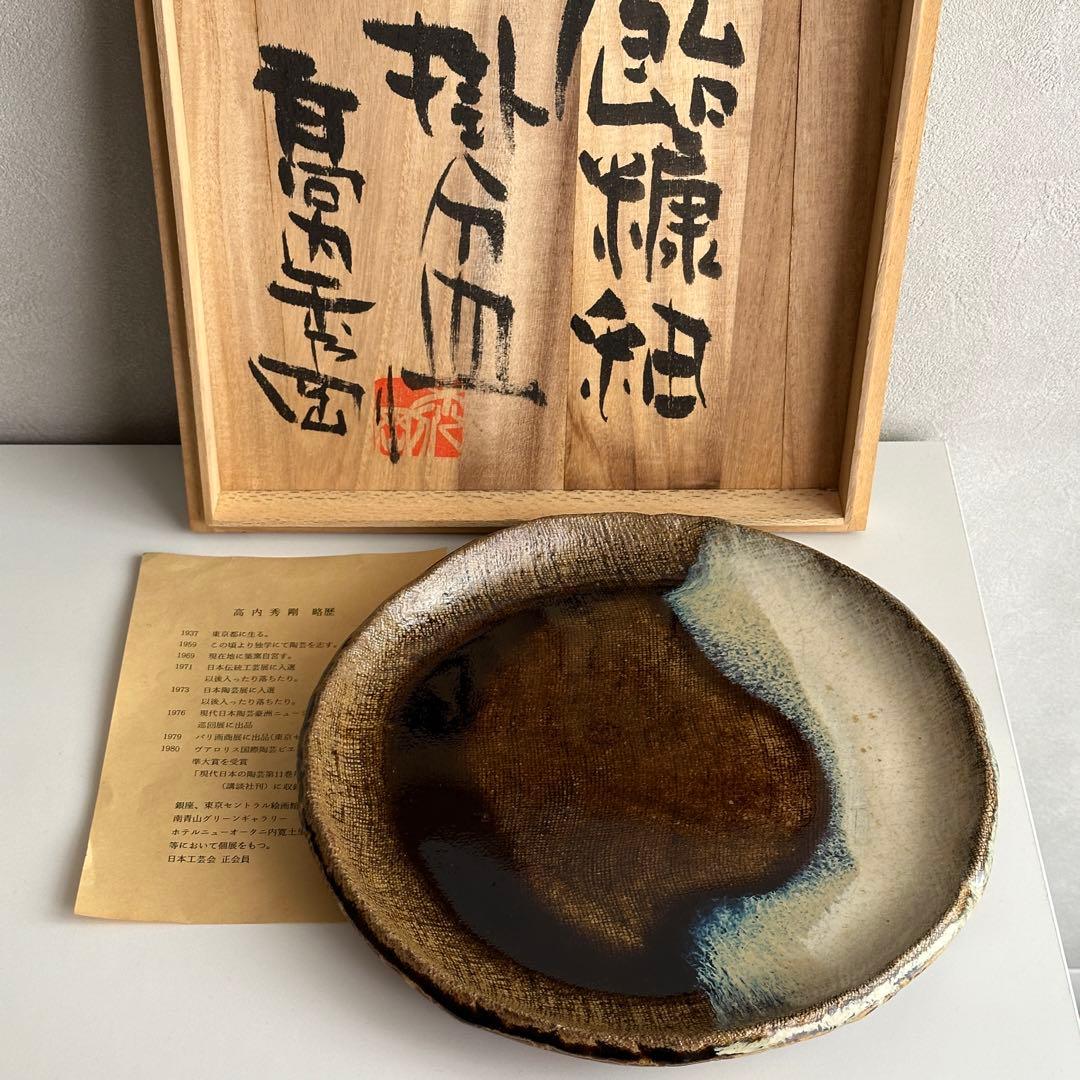 飴糠釉
掛分皿
高内秀剛
高内秀剛 略歴
1937 東京都に生る。
1959 この頃より独学にて陶芸を志す。
1969 現在地に築窯自営す。
1971 日本伝統工芸展に入選
以後入ったり落ちたり。
1973 日本陶芸展に入選
以後入ったり落ちたり。
1976 現代日本陶芸豪洲ニュー
巡回展に出品
1979 パリ画商展に出品(東京セ
1980 ヴァロリス国際陶芸ビエ
準大賞を受賞
「現代日本の陶芸第11巻
(講談社刊)に収録
銀座、東京セントラル絵画館
南青山グリーンギャラリー
ホテルニューオータニ内寛土里
等において個展をもつ。
日本工芸会 正会員